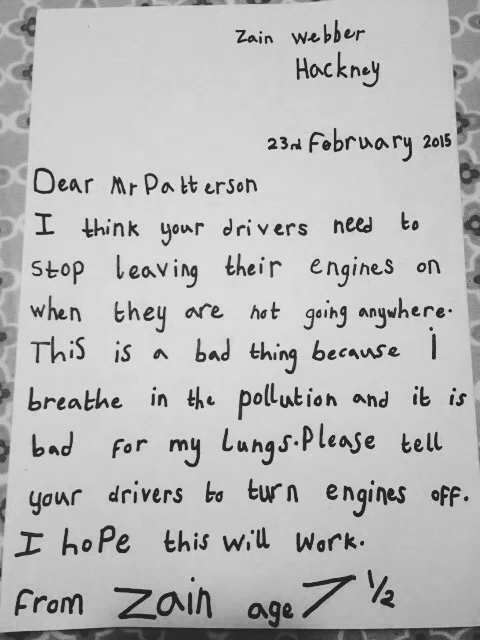 Zain Webber
Hackney
23rd February 2015
Dear Mr Patterson
I think your drivers need to
stop leaving their engines on
when they are not going anywhere.
This is a bad thing because i
breathe in the pollution and it is
bad for my lungs. Please tell
your drivers to turn engines off.
I hope this will work.
From Zain age 7 1/2